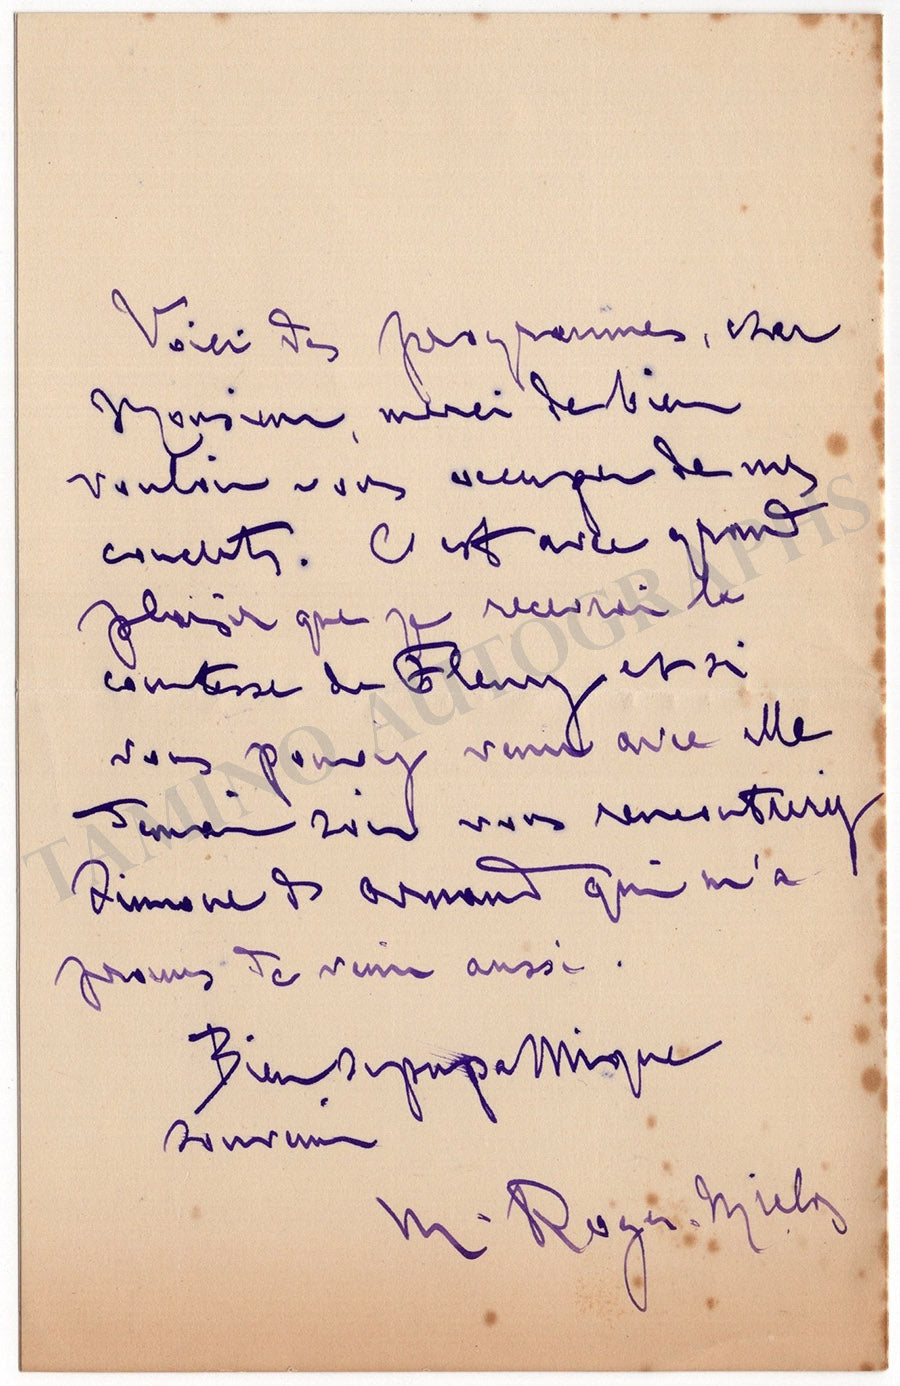 Voici des programmes, cher
Monsieur, merci de bien
vouloir vous occuper de mes
concerts. C'est avec grand
plaisir que je recevrai la
comtesse de Fleury et si
vous pouvez venir avec elle
demain soir vous rencontreriez
Simone d' Arnaud qui m'a
promis de venir aussi.
Bien sympathique
souvenir
M. Roger-Miclos
TAMINO AUTOGRAPHS